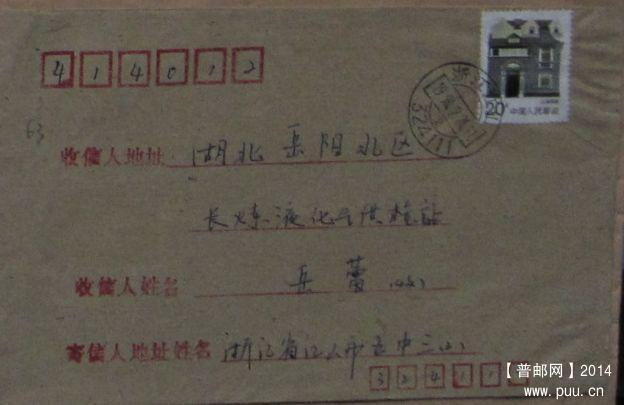 414012
20分
中国人民邮政
浙江
63
收信人地址 湖北岳阳北区
长炼液化气供echter站
收信人姓名 岳蕾(收)
寄信人地址姓名 浙江省江山市五中三(2)
【普邮网】2014
www.puu.cn